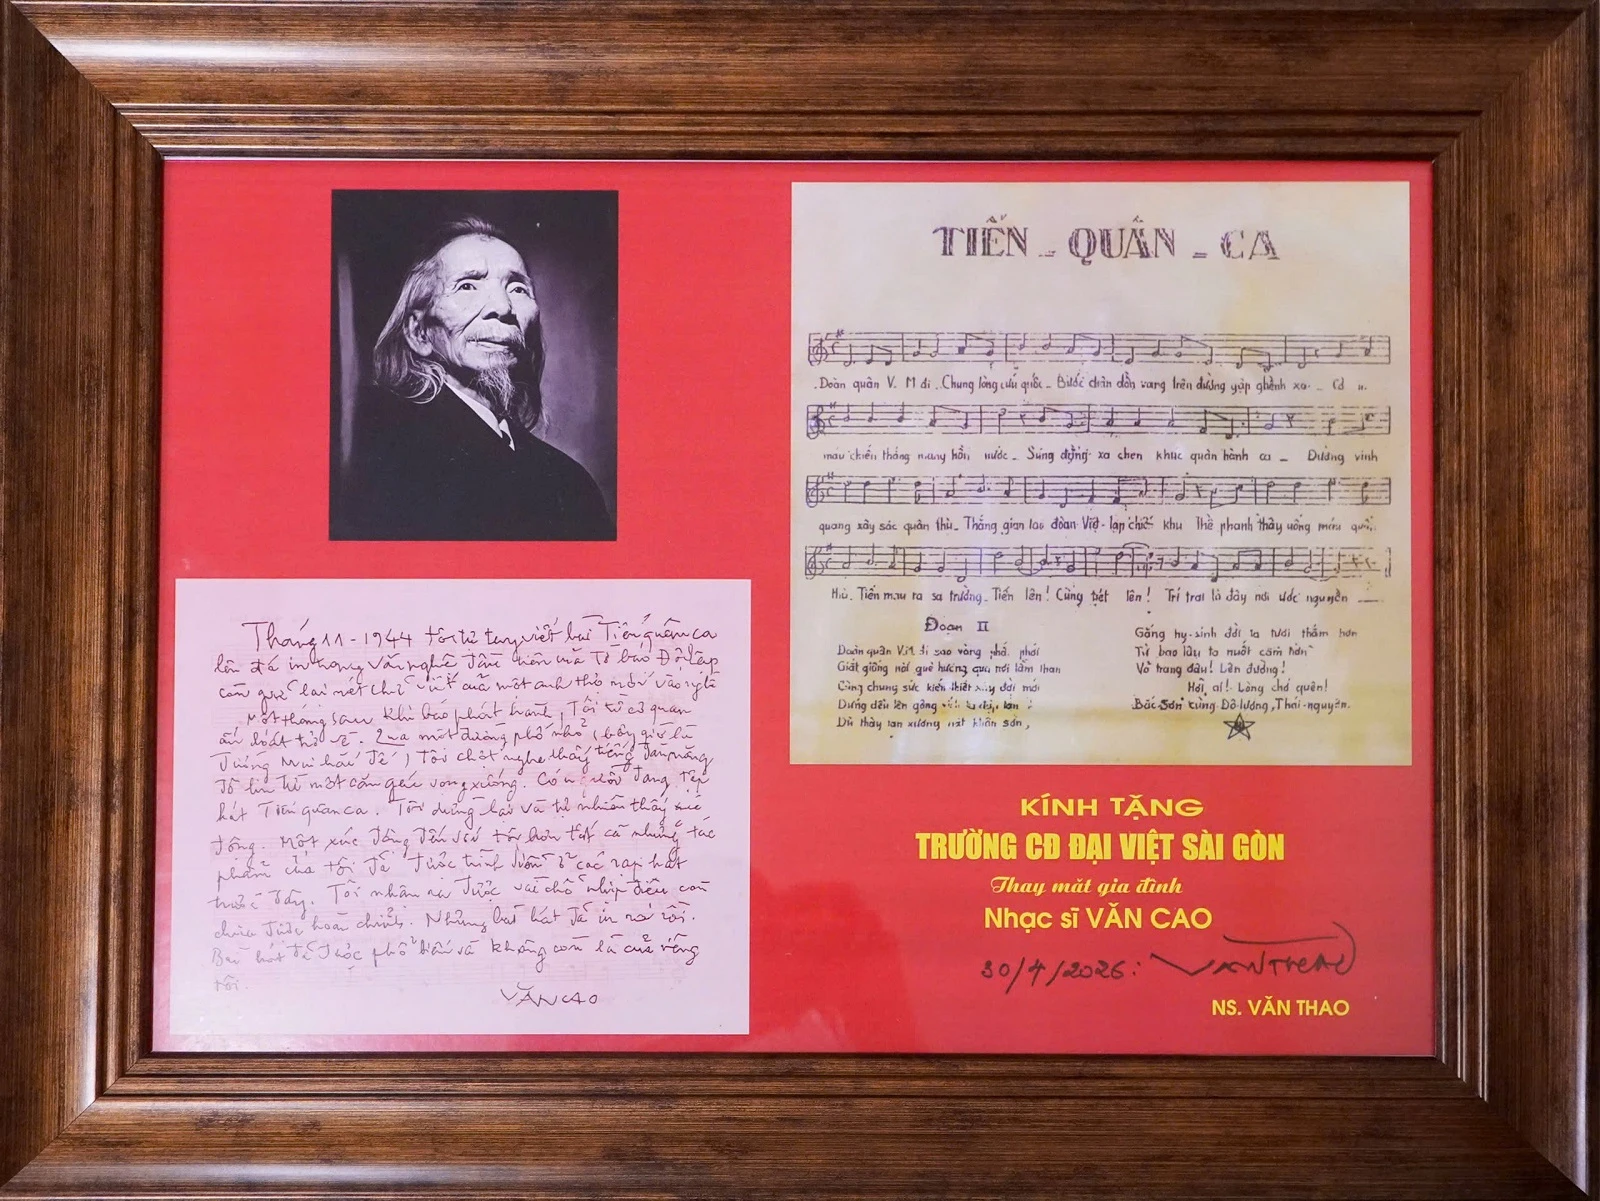 Tháng 11-1944 tôi tự tay viết bài Tiến quân ca
lên đá in trong
Một tháng sau khi báo phát hành, tôi từ cơ quan
ấn loát trở về. Qua một đường phố nhỏ (bây giờ là
tôi chợt nghe thấy tiếng
một căn gác vọng xuống. Có người đang tập
hát Tiến quân ca. Tôi dừng lại và tự nhiên thấy xúc
động. Một xúc động đến với tôi hơn tất cả những tác
phẩm của tôi đã được trình diễn ở các rạp hát
trước đây. Tôi nhận ra được vài chỗ nhịp điệu còn
chưa được hoàn chỉnh. Nhưng bài hát đã in ra rồi.
Bài hát đã được phổ biến và không còn là của riêng
tôi.
VĂN CAO
TIẾN - QUÂN - CA
Đoàn quân V. M đi. Chung lòng cứu quốc - Bước chân dồn vang trên đường gập ghềnh xa - Cờ in
máu chiến thắng mang hồn nước - Súng đằng xa chen khúc quân hành ca - Đường vinh
quang xây xác quân thù - Thắng gian lao đoàn Việt lập chiến khu Thề phanh thây uống máu quân
thù. Tiến mau ra sa trường. Tiến lên! Cùng tiến lên! Trí trai là đây nơi ước nguyền
Đoạn II
Đoàn quân V.M đi sao vàng phấp phới
Giắt giống nòi quê hương qua nơi lầm than
Cùng chung sức kiến thiết xây đời mới
Đứng đều lên gông
Dù thây tan xương nát không sờn,
Gắng hy-sinh đời ta tươi thắm hơn
Từ bao lâu ta nuốt căm hờn
Vỏ trang đâu! Lên đường!
Hỡi, ai! Lòng chớ quên!
Bắc-Sơn cùng Đô-lương, Thái-nguyên.
KÍNH TẶNG
TRƯỜNG CĐ ĐẠI VIỆT SÀI GÒN
Thay mặt gia đình
Nhạc sĩ VĂN CAO
30/4/2026: VĂN THAO
NS. VĂN THAO